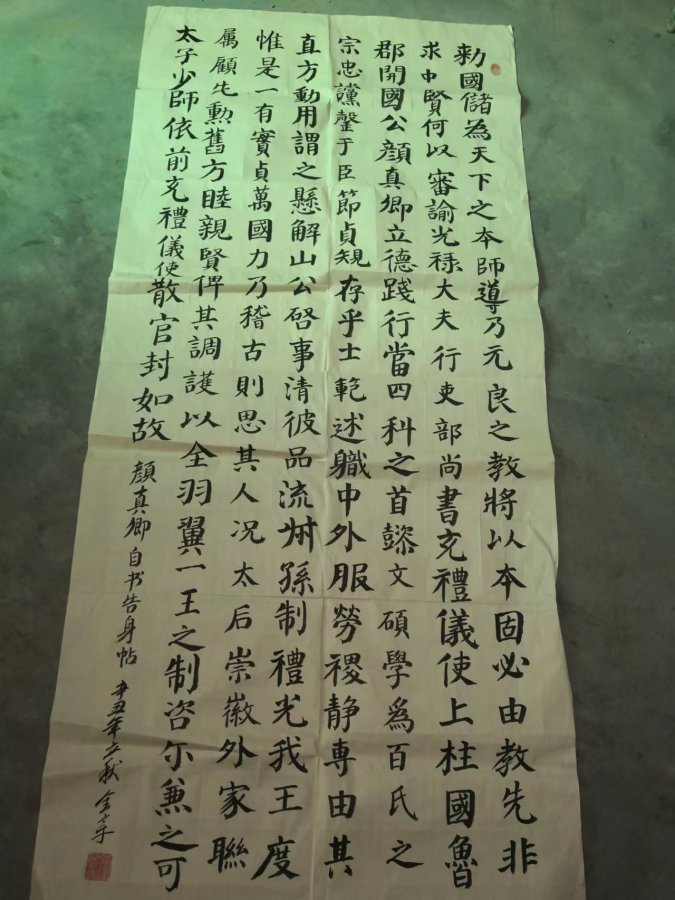 勑國儲為天下之本師導乃元良之教將以本固必由教先非
求中賢何以審諭光祿大夫行吏部尚書充禮儀使上柱國魯
郡開國公顏真卿立德踐行當四科之首懿文碩學爲百氏之
宗忠讜罄于臣節貞規存乎士範述職中外服勞稷靜專由其
直方動用謂之懸解山公啓事清彼品流叔孫制禮光我王度
惟是一有實貞萬國力乃稽古則思其人况太后崇徽外家聯
属顧先勲舊方睦親賢俾其調護以全羽翼一王之制咨尔兼之可
太子少師依前充禮儀使散官封如故 顏真卿自书告身帖 辛丑年立秋